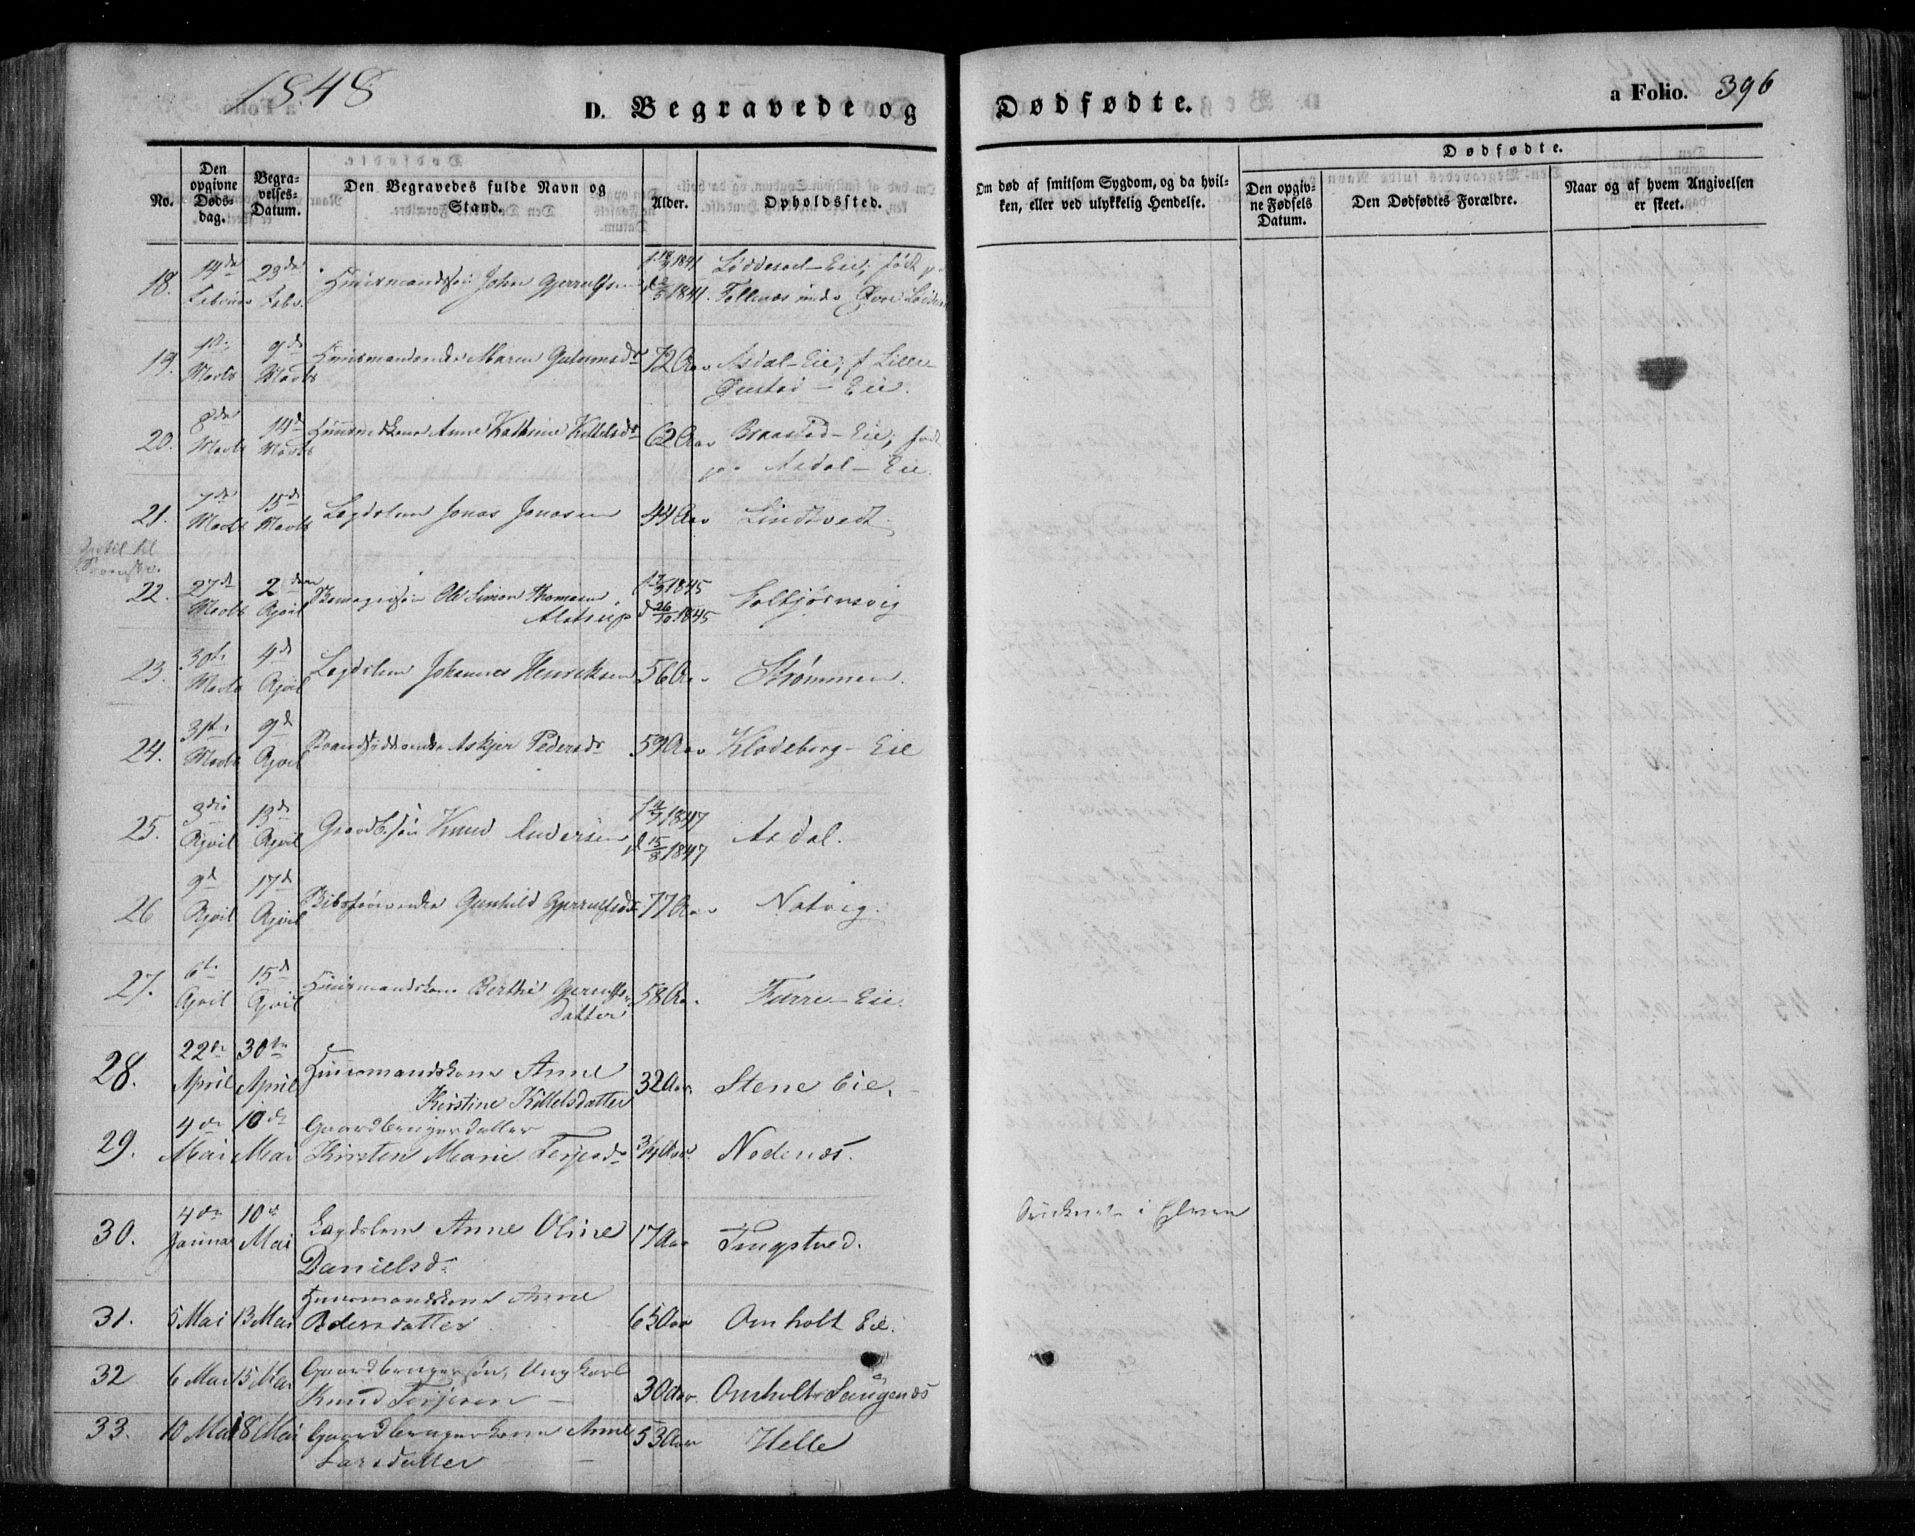 1848
D. Begravede og Dødfødte.
a Folio. 396
No.
Den opgivne Døds-dag.
Begra-velses-Datum.
Den Begravedes fulde Navn og Stand.
Alder.
Opholdssted.
Om død af smitsom Sygdom, og da hvil-ken, eller ved ulykkelig Hendelse.
Dødfødte.
Den opgiv-ne Fødsels Datum.
Den Dødfødtes Forældre.
Naar og af hvem Angivelsen er skeet.
18. 14de Februar 23de Febr. Huusmandssøn John Gjerulfsen 1841 Løddesøl-Eie, født
1841.
19. Marts 9de Marts Maren 72 Aar Asdal-Eie, f. Lille
- Eie.
20. 8de Marts 14d Marts Anne Kathrine Kittelsdr 62 Aar Braastad-Eie, født
paa Asdal-Eie.
21. 7de Marts 15de Marts Lægdslem Jonas Jonasen 44 Aar Lindtvedt.
22. 27d Marts 2den April Ole Simon Thomsen 1845 Kolbjørnsvig
Alstrup d 26/10 1845
23. 30te Marts 4d April Lægdslem Johannes Henriksen 56 Aar Strømmen.
24. 31te Marts 9d April Askjer Pedersdr 59 Aar Klodeborg-Eie
25. 3die April 13d April Gaardb.søn Knud Andersen 1847 Asdal.
d 15/8 1847
26 9d April 17d April Gunhild Gjerulfsdr 77 Aar Natvig.
27. 6te April 15d April Huusmandskone Berthe Gjerulfs-
datter 58 Aar. Furre-Eie.
28. 22de April 30te April Huusmandskone Anne
Kirstine Kittelsdatter 32 Aar. Stene Eie.
29. 4de Mai 10de Mai Gaardbrugerdatter
Kirsten Marie Terjesdr 3/4 Aar. Nedenæs.
30. 4de Januar 10de Mai Lægdslem Anne Oline
Danielsdr 17 Aar Tingstved. Druknet i Elven
31. 5 Mai 13 Mai Huusmandskone Anne
Pedersdatter 65 Aar Omholt Eie.
32 6 Mai 15 Mai Gaardbrugersøn, Ungkarl
Knud Terjesen 30 Aar. Omholt Langenæs
33. 10 Mai 18 Mai Gaardbrugerkone Anne
Larsdatter 53 Aar Helle